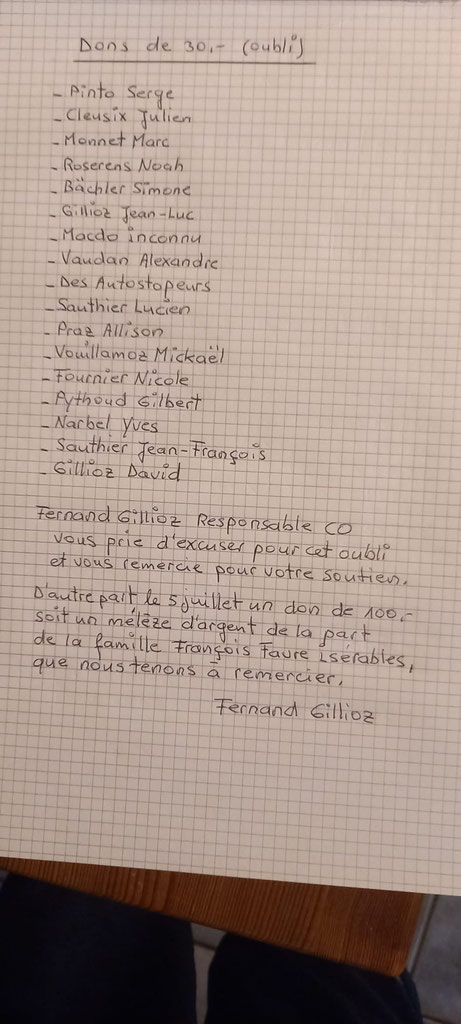 Dons de 30.- (oubli)
- Pinto Serge
- Cleusix Julien
- Monnet Marc
- Roserens Noah
- Bächler Simone
- Gillioz Jean-Luc
- Macdo inconnu
- Vaudan Alexandre
- Des Autostopeurs
- Sauthier Lucien
- Praz Allison
- Vouillamoz Mickaël
- Fournier Nicole
- Pythoud Gilbert
- Narbel Yves
- Sauthier Jean-François
- Gillioz David
Fernand Gillioz Responsable CO
vous prie d'excuser pour cet oubli
et vous remercie pour votre soutien.
D'autre part le 5 juillet un don de 100.-
soit un mélèze d'argent de la part
de la famille François Favre Isérables,
que nous tenons à remercier.
Fernand Gillioz